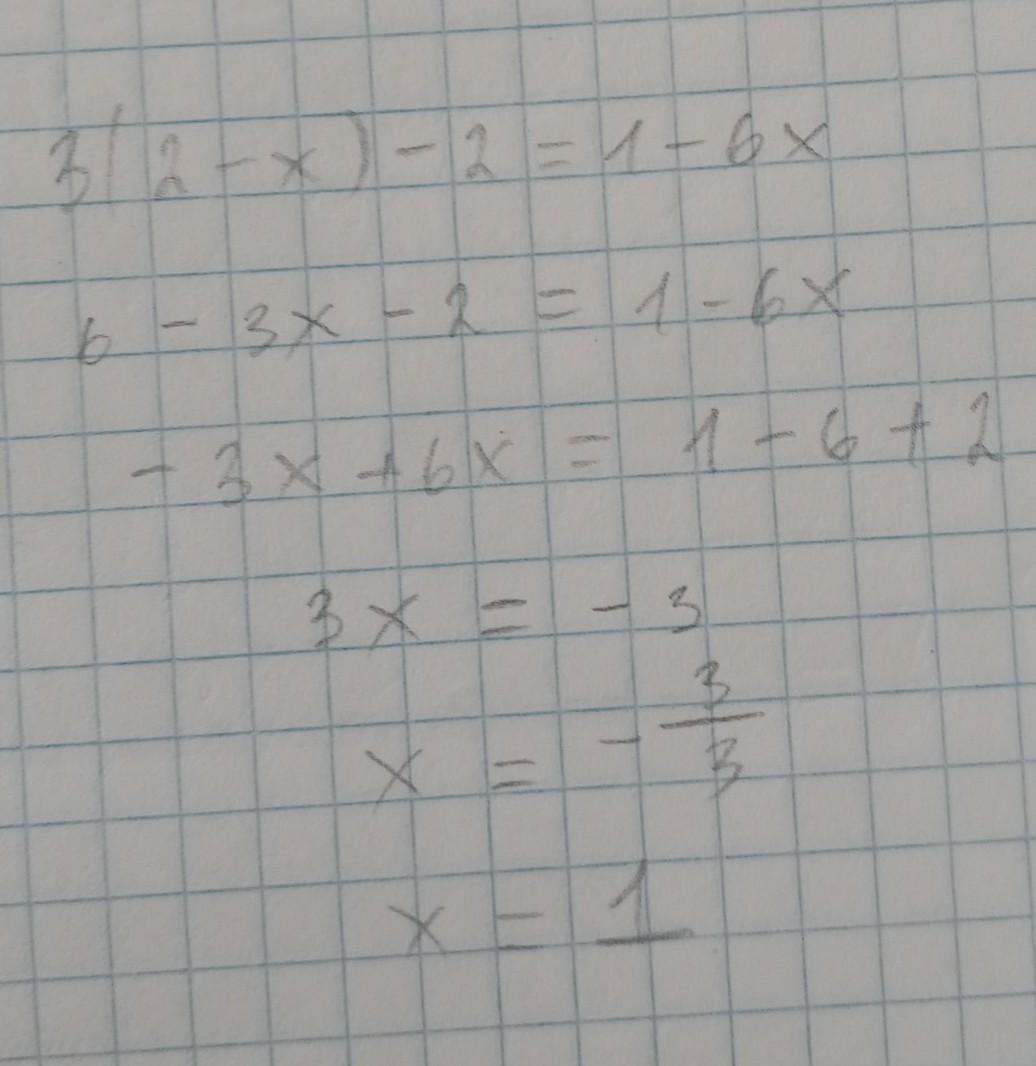 3(2-x)-2=1-6x
6-3x-2=1-6x
-3x+6x=1-6+2
3x=-3
x=-3/3
x=1